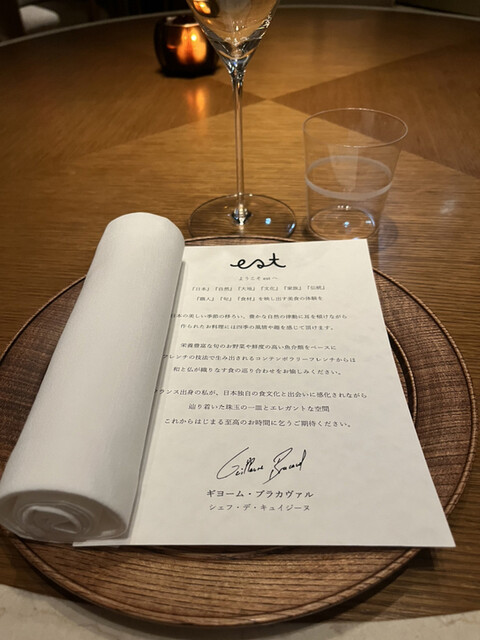 est
ようこそ est へ
『日本』『自然』『大地』『文化』『家族』『伝統』
『個人』『旬』『食材』を映し出す美食の体験を
日本の美しい季節の移ろい、豊かな自然の律動に耳を傾けながら
作られたお料理には四季の風情や趣を感じて頂けます。
栄養豊富な旬のお野菜や鮮度の高い魚介類をベースに
フレンチの技法で生み出されるコンテンポラリーフレンチからは
和と仏が織りなす食の巡り合わせをお愉しみください。
ランス出身の私が、日本独自の食文化と出会いに感化されながら
辿り着いた珠玉の一皿とエレガントな空間
これからはじまる至高のお時間に乞うご期待ください。
ギヨーム・ブラカヴァル
シェフ・デ・キュイジーヌ